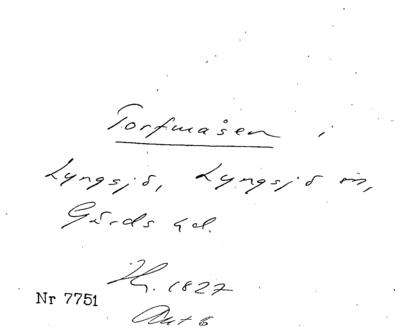 Torfmåsen i
Lyngsjö, Lyngsjö sn,
Gärds hd.
H. 1827
Nr 7751
Akt 6